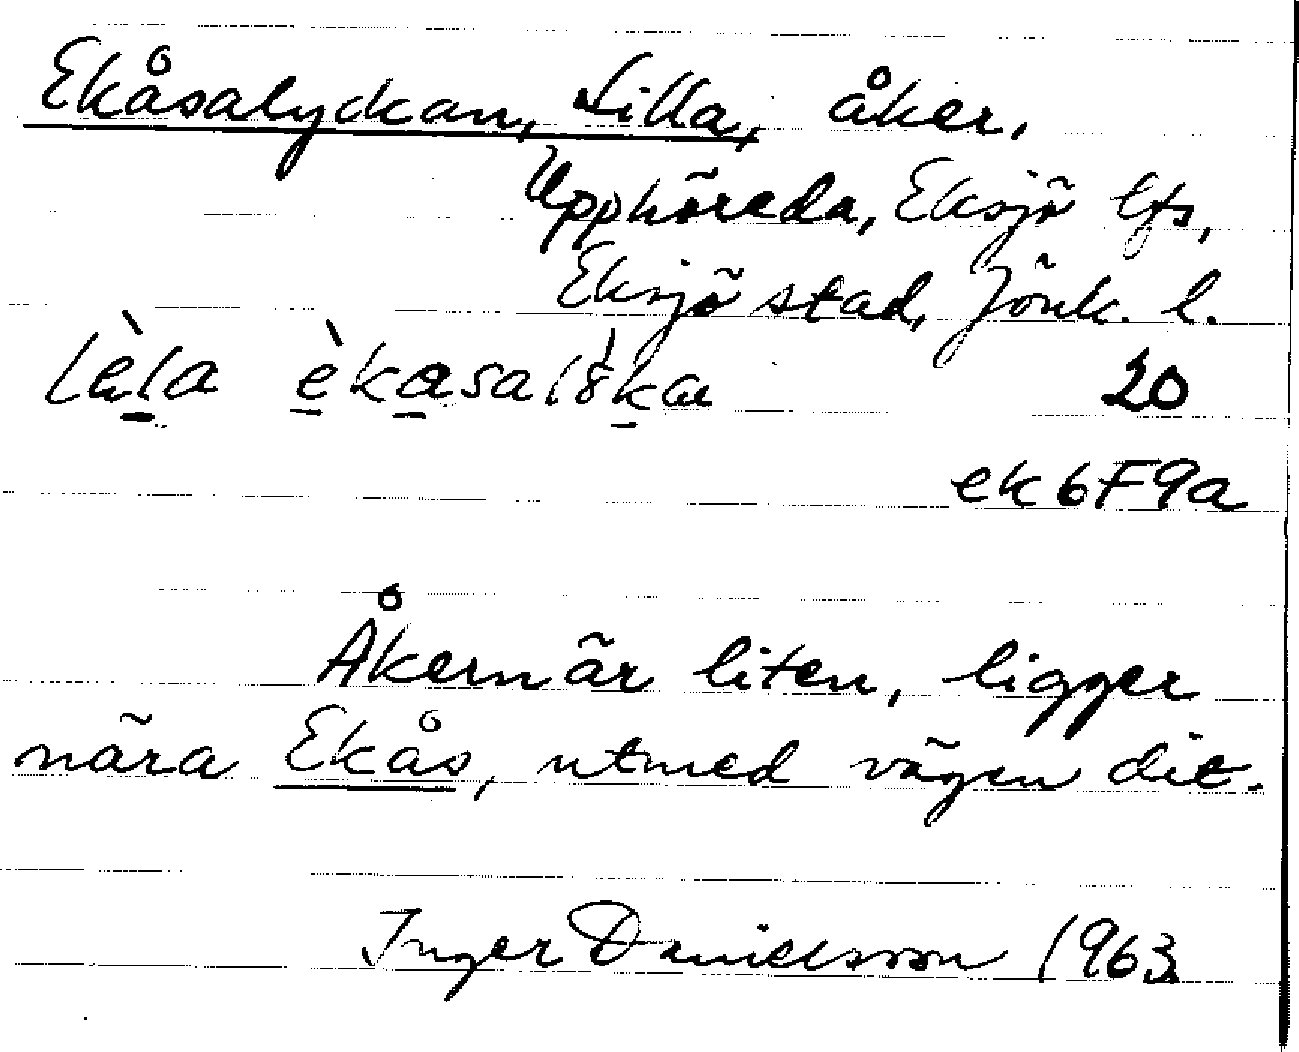 Ekåsalyckan, Lilla, åker.
Upphöreda, Eksjö lfs,
Eksjö stad, Jönk. l.
lèla èkasalöka 20
ek 6F9a
Åkern är liten, ligger
nära Ekås, utmed vägen dit.
Inger Danielsson 1963